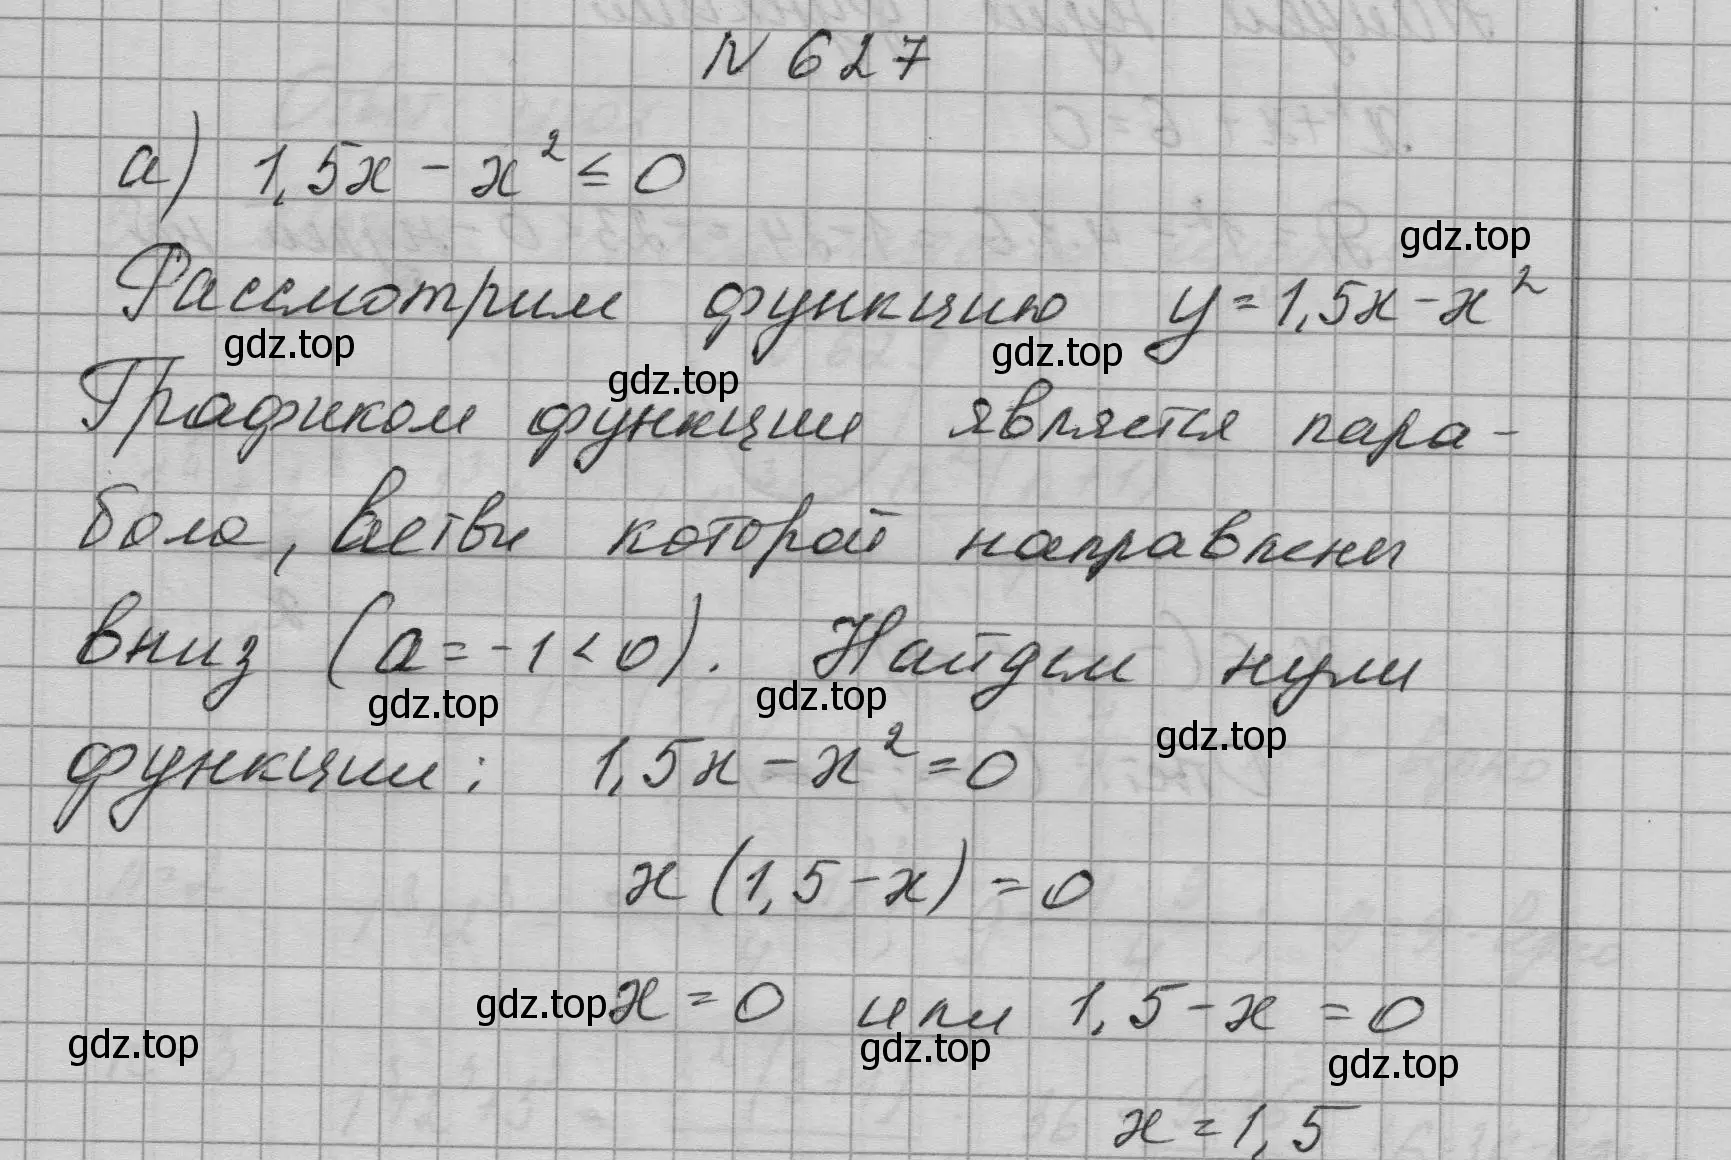 N 627
а) 1,5x - x² ≤ 0
gdz.top
Рассмотрим функцию y = 1,5x - x²
gdz.top gdz.top gdz.top
Графиком функции является пара-
бола, ветви которой направлены
вниз (a = -1 < 0). Найдем нули
gdz.top gdz.top gdz.top
функции: 1,5x - x² = 0
x (1,5 - x) = 0
gdz.top x = 0 или 1,5 - x = 0
gdz.top gdz.top gdz.top
x = 1,5